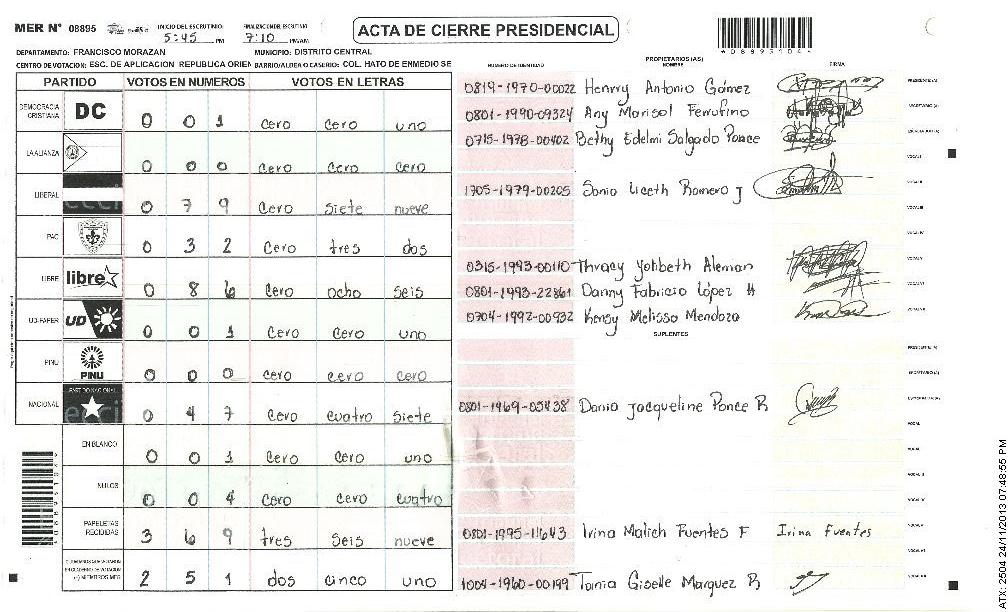 MER Nº 08895 INICIO DEL ESCRUTINIO 5:45 PM FINALIZACION DEL ESCRUTINIO 7:10 PM/AM ACTA DE CIERRE PRESIDENCIAL *088951044*
DEPARTAMENTO: FRANCISCO MORAZAN MUNICIPIO: DISTRITO CENTRAL
CENTRO DE VOTACION: ESC. DE APLICACION REPUBLICA ORIEN BARRIO/ALDEA O CASERIO: COL. HATO DE ENMEDIO SE
PARTIDO VOTOS EN NUMEROS VOTOS EN LETRAS
DEMOCRACIA CRISTIANA DC 0 0 1 cero cero uno
LA ALIANZA 0 0 0 cero cero cero
LIBERAL 0 7 9 cero siete nueve
PAC 0 3 2 cero tres dos
LIBRE libre 0 8 6 cero ocho seis
UD-FAPER UD 0 0 1 cero cero uno
PINU PINU 0 0 0 cero cero cero
NACIONAL PARTIDO NACIONAL 0 4 7 cero cuatro siete
EN BLANCO 0 0 1 cero cero uno
NULOS 0 0 4 cero cero cuatro
PAPELETAS RECIBIDAS 3 6 9 tres seis nueve
2 5 1 dos cinco uno
NUMERO DE IDENTIDAD PROPIETARIOS (AS) NOMBRE FIRMA
0819-1970-00022 Henrry Antonio Gómez PRESIDENTE (A)
0801-1990-09324 Any Marisol Ferrofino SECRETARIO (A)
0715-1978-00402 Bethy Edelmi Salgado Ponce ESCRUTADOR (A)
VOCAL I
1705-1979-00205 Sonia Liceth Romero J VOCAL II
VOCAL III
VOCAL IV
0315-1993-00110 Thracy Yohbeth Aleman VOCAL V
0801-1993-22861 Danny Fabricio López H VOCAL VI
0704-1992-00932 Kensy Melissa Mendoza VOCAL VII
SUPLENTES
PRESIDENTE (A)
SECRETARIO (A)
0801-1969-05438 Dania Jacqueline Ponce R ESCRUTADOR (A)
VOCAL I
VOCAL II
VOCAL III
VOCAL IV
0801-1995-11643 Irina Malich Fuentes F Irina Fuentes VOCAL V
VOCAL VI
1004-1960-00199 Tania Giselle Marquez R VOCAL VII
ATX-2504 24/11/2013 07:48:55 PM